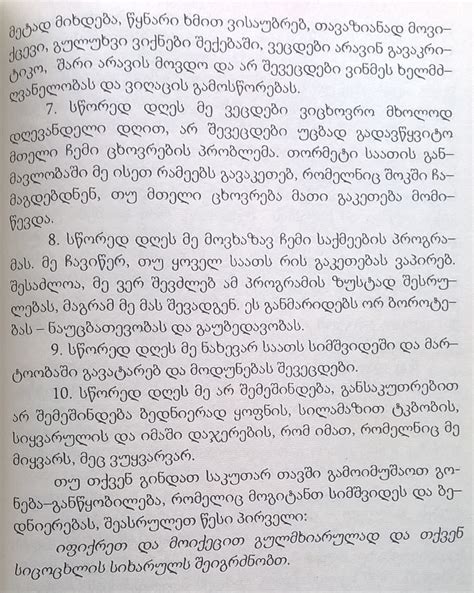 მეტად მიხდება, წყნარი ხმით ვისაუბრებ, თავაზიანად მოვი-
ქცევი, გულუხვი ვიქნები შექებაში, ვეცდები არავინ გავაკრი-
ტიკო, შარი არავის მოვდო და არ შევეცდები ვინმეს ხელმძ-
ღვანელობას და ვიღაცის გამოსწორებას.
7. სწორედ დღეს მე ვეცდები ვიცხოვრო მხოლოდ
დღევანდელი დღით, არ შევეცდები უცბად გადავწყვიტო
მთელი ჩემი ცხოვრების პრობლემა. თორმეტი საათის გან-
მავლობაში მე ისეთ რამეებს გავაკეთებ, რომელნიც შოკში ჩა-
მაგდებდნენ, თუ მთელი ცხოვრება მათი გაკეთება მომი-
წევდა.
8. სწორედ დღეს მე მოვხაზავ ჩემი საქმეების პროგრა-
მას. მე ჩავიწერ, თუ ყოველ საათს რის გაკეთებას ვაპირებ.
შესაძლოა, მე ვერ შევძლებ ამ პროგრამის ზუსტად შესრუ-
ლებას, მაგრამ მე მას შევადგენ. ეს განმარიდებს ორ ბოროტე-
ბას – ნაუცბათევობას და გაუბედავობას.
9. სწორედ დღეს მე ნახევარ საათს სიმშვიდეში და მარ-
ტოობაში გავატარებ და მოდუნებას შევეცდები.
10. სწორედ დღეს მე არ შემეშინდება, განსაკუთრებით
არ შემეშინდება ბედნიერად ყოფნის, სილამაზით ტკბობის,
სიყვარულის და იმაში დაჯერების, რომ იმათ, რომელნიც მე
მიყვარს, მეც ვუყვარვარ.
თუ თქვენ გინდათ საკუთარ თავში გამოიმუშაოთ გო-
ნება–განწყობილება, რომელიც მოგიტანთ სიმშვიდეს და ბე-
დნიერებას, შეასრულეთ წესი პირველი:
იფიქრეთ და მოიქეცით გულმხიარულად და თქვენ
სიცოცხლის სიხარულს შეიგრძნობთ.